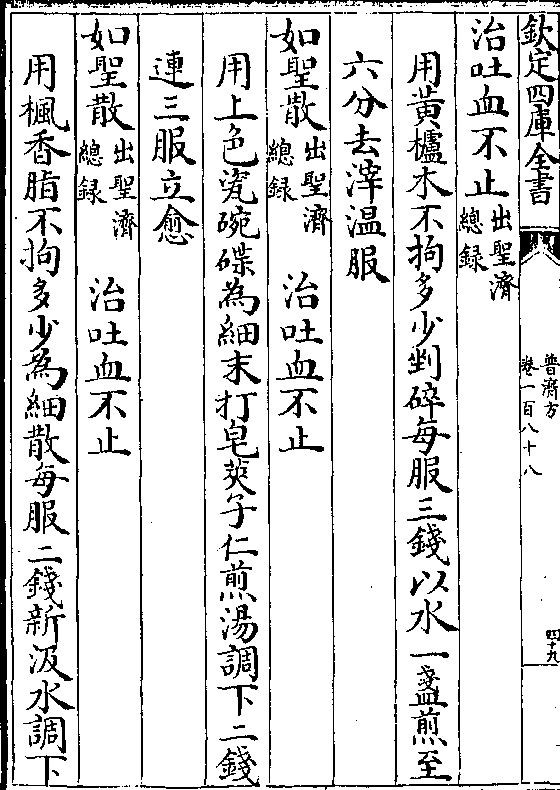 欽定四庫全書
普濟方
卷一百八十八
四十九
治吐血不止出聖濟總録
用黄櫨木不拘多少剉碎每服三錢以水一盞煎至
六分去滓温服
如聖散出聖濟總録 治吐血不止
用上色瓷碗碟為細末打皂莢子仁煎湯調下二錢
連三服立愈
如聖散出聖濟總録 治吐血不止
用楓香脂不拘多少為細散每服二錢新汲水調下